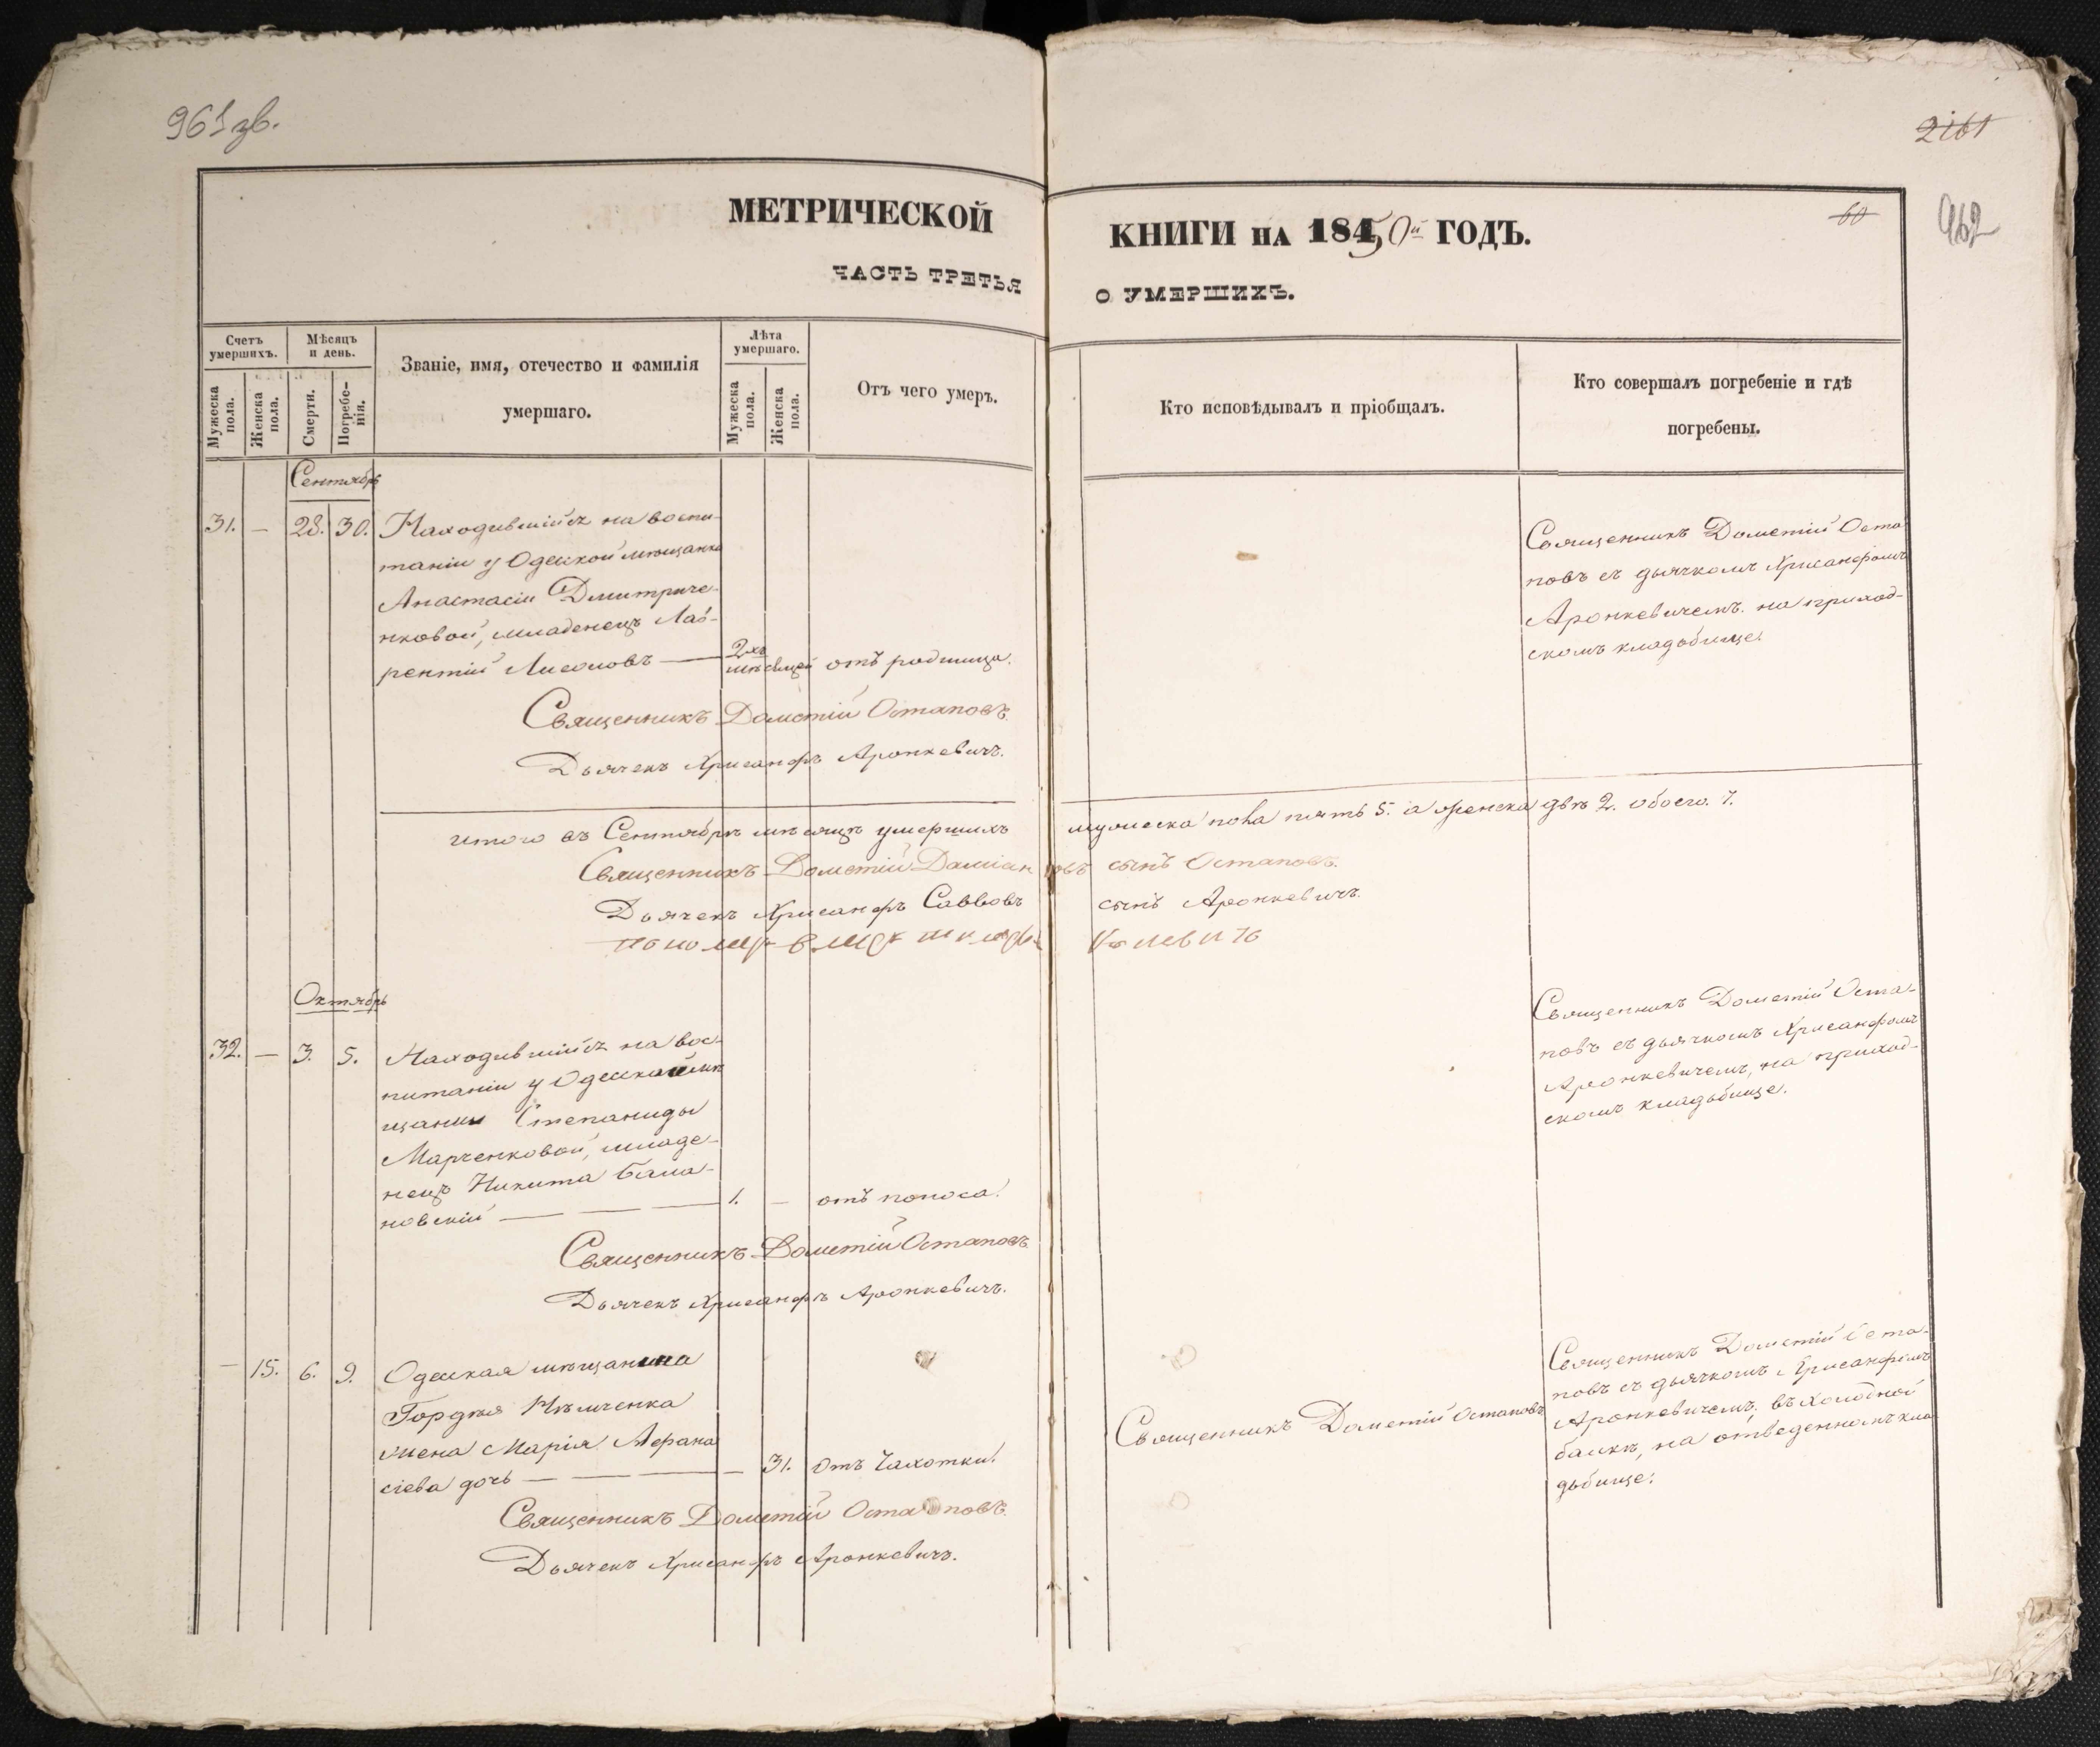 961 зв.
2161
60
962
МЕТРИЧЕСКОЙ КНИГИ НА 1850й ГОДЪ.
ЧАСТЬ ТРЕТЬЯ О УМЕРШИХЪ.
Счетъ умершихъ.
Мужеска пола.
Женска пола.
Мѣсяцъ и день.
Смерти.
Погребенія.
Званіе, имя, отечество и фамилія
умершаго.
Лѣта умершаго.
Мужеска пола.
Женска пола.
Отъ чего умеръ.
Кто исповѣдывалъ и пріобщалъ.
Кто совершалъ погребеніе и гдѣ
погребены.
Сентябрь
31. — 28. 30. Находившійся на воспи-
таніи у Одесской мѣщанки
Анастасіи Дмитриче-
нковой, младенецъ Лав-
рентій — 2хъ мѣсяцей отъ родимца.
Священникъ Дометій Оста
повъ съ дьячкомъ Хрисанфомъ
Аронкевичемъ. на приход-
скомъ кладбище.
Священникъ Дометій Остаповъ.
Дьячекъ Хрисанфъ Аронкевичъ.
Итого въ Сентябрѣ мѣсяцѣ умершихъ мужеска пола пять 5. а женска двѣ 2. обоего. 7.
Священникъ Дометій Даміановъ сынъ Остаповъ.
Дьячекъ Хрисанфъ Саввовъ сынъ Аронкевичъ.
Октябрь
32. — 3. 5. Находившійся на вос-
питаніи у Одесской мѣ
щанки Степаниды
Марченковой, младе-
нецъ Никита Бала-
новскій — — — 1. — отъ поноса.
Священникъ Дометій Оста-
повъ съ дьячкомъ Хрисанфомъ
Аронкевичемъ, на приход-
скомъ кладбище.
Священникъ Дометій Остаповъ.
Дьячекъ Хрисанфъ Аронкевичъ.
— 15. 6. 9. Одесская мѣщанина
Гордѣя Нѣмченка
жена Марія Афана
сіева дочь — — — — 31. отъ Чахотки.
Священникъ Дометій Остаповъ
Священникъ Дометій Оста-
повъ съ дьячкомъ Хрисанфомъ
Аронкевичемъ, въ Холодной
балкѣ, на отведенномъ кла
дбище.
Священникъ Дометій Остаповъ.
Дьячекъ Хрисанфъ Аронкевичъ.